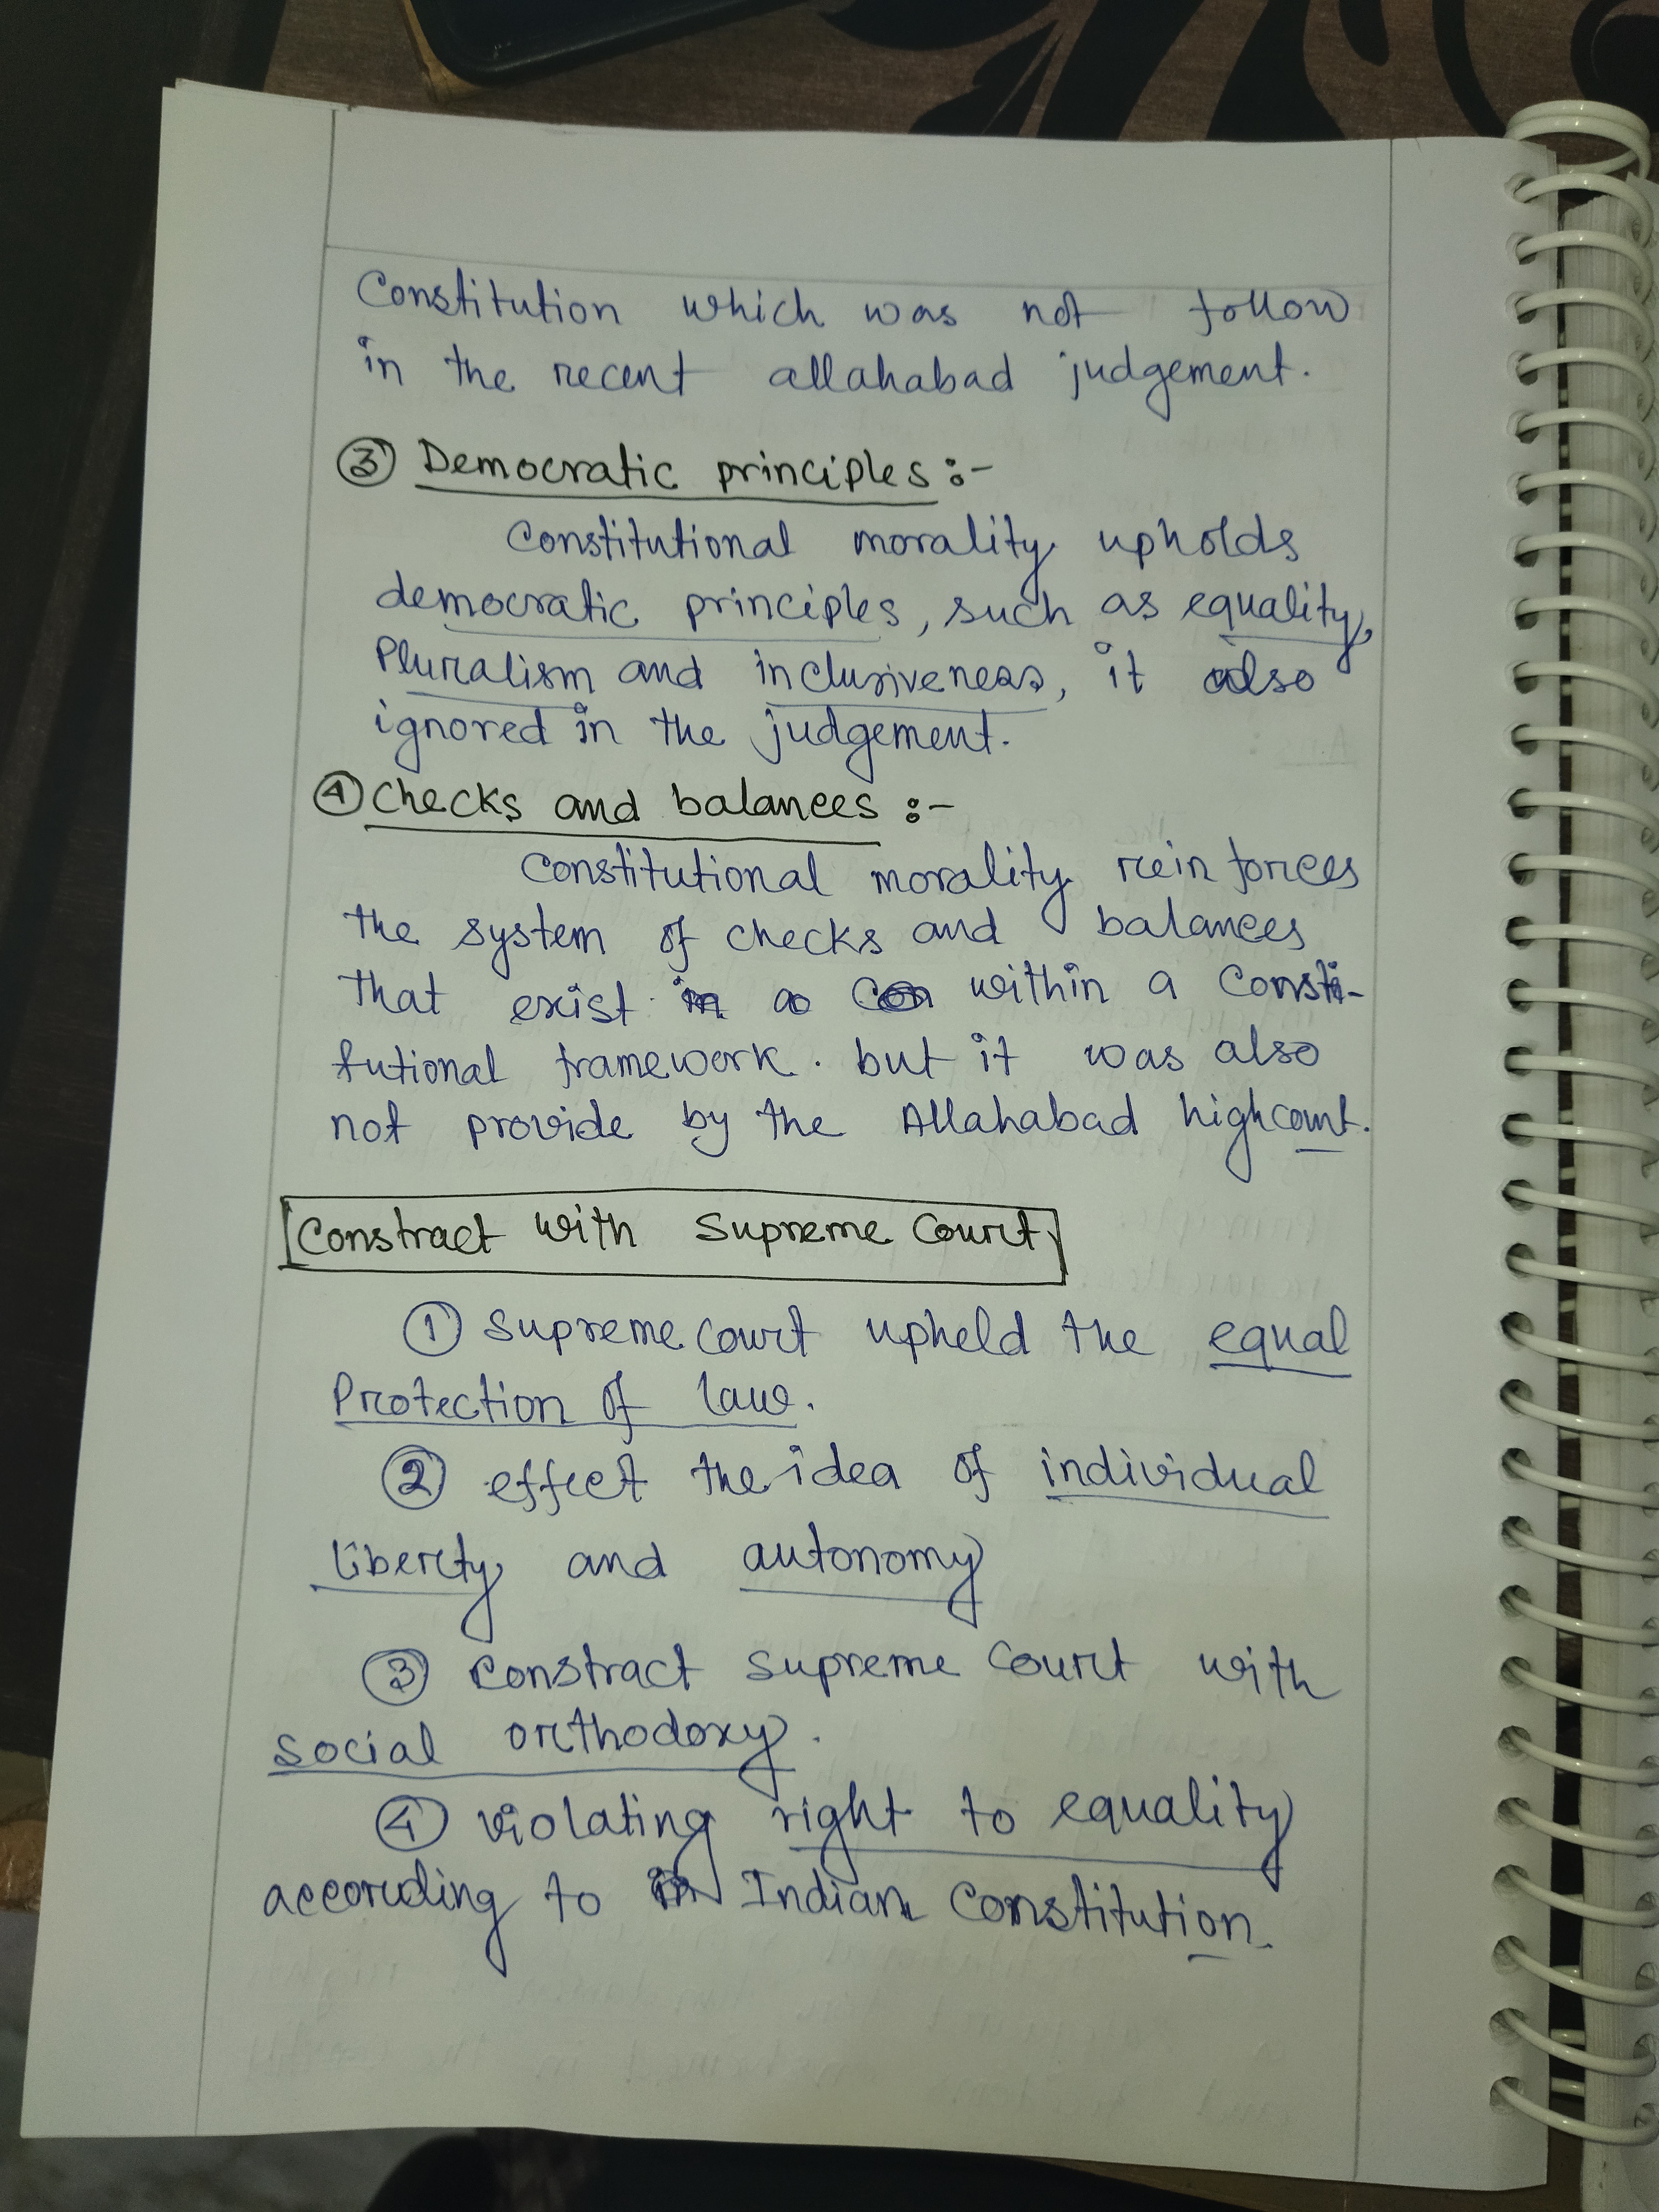 Constitution which was not follow
in the recent allahabad judgement.
③ Democratic principles :-
Constitutional morality upholds
democratic principles, such as equality,
Pluralism and inclusiveness, it also
ignored in the judgement.
④ Checks and balances :-
Constitutional morality reinforces
the system of checks and balances
that exist in a Con within a Consti-
tutional framework. but it was also
not provide by the Allahabad highcourt.
Constract with Supreme Court
① Supreme Court upheld the equal
Protection of law.
② effect the idea of individual
liberty and autonomy
③ Constract Supreme Court with
social orthodoxy.
④ violating right to equality
according to in Indian Constitution.